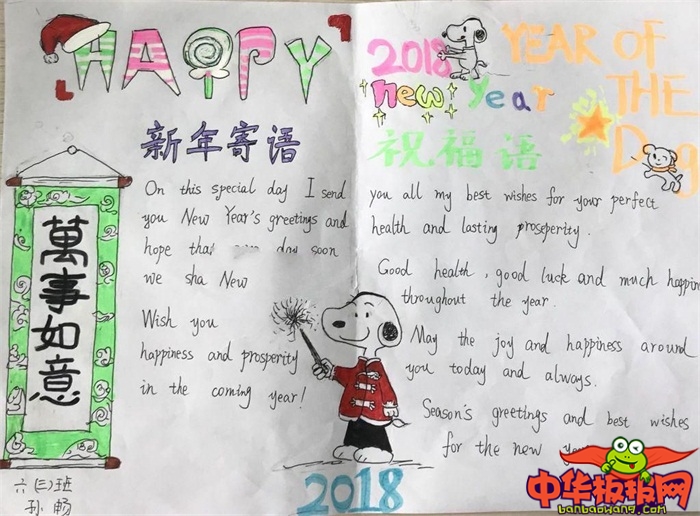 HAPPY
2018
new Year
YEAR OF
THE
Dog
新年寄语
祝福语
萬事如意
On this special day I send
you New Year's greetings and
hope that day soon
we sha New
Wish you
happiness and prosperity
in the coming year!
you all my best wishes for your perfect
health and lasting prosperity.
Good health, good luck and much happin
throughout the year.
May the joy and happiness around
you today and always.
Season's greetings and best wishes
for the new
2018
六(三)班
孙畅
中华板报网
banbaowang.com